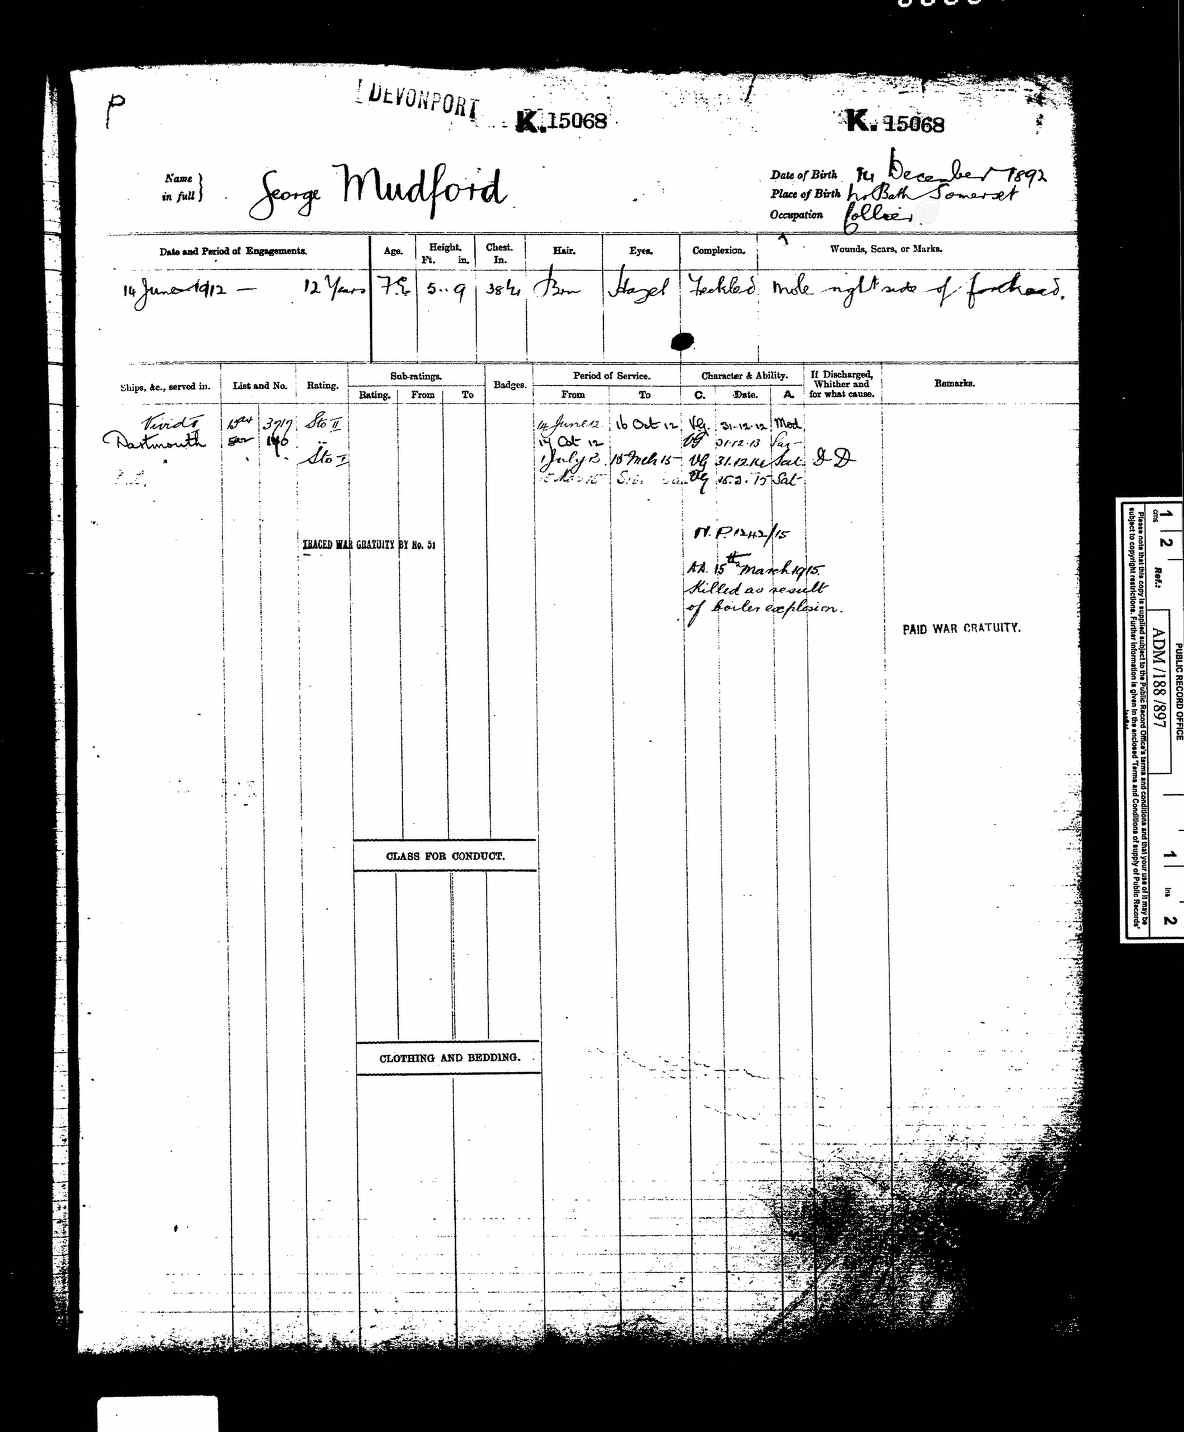 P
DEVONPORT
K. 15068
K. 15068
Name in full } George Mudford
Date of Birth 14 December 1892
Place of Birth nr Bath Somerset
Occupation Collier
Date and Period of Engagements. Age. Height. Ft. in. Chest. In. Hair. Eyes. Complexion. Wounds, Scars, or Marks.
14 June 1912 — 12 Years 5 .. 9 Brn Hazel Freckled Mole right side of forehead.
Ships, &c., served in. List and No. Rating. Sub-ratings. Badges. Period of Service. Character & Ability. If Discharged, Whither and for what cause. Remarks.
Rating. From To From To C. Date. A.
Vivid II 3717 Sto II 14 June 12 16 Oct 12 Vg. 31.12.12 Mod
Dartmouth 140 " 17 Oct 12 VG 31.12.13
" " " Sto I 1 July 13 15 Mch 15 VG 31.12.14 Sat DD
Vg 15.3.15 Sat
TRACED WAR GRATUITY BY No. 51
N.P. 1242/15
15th March 1915.
Killed as result
of boiler explosion.
PAID WAR GRATUITY.
CLASS FOR CONDUCT.
CLOTHING AND BEDDING.
PUBLIC RECORD OFFICE
Ref.: ADM/188/897
cms 1 2
1 ins 2
Please note that this copy is supplied subject to the Public Record Office's terms and conditions and that your use of it may be
subject to copyright restrictions. Further information is given in the enclosed 'Terms and Conditions of supply of Public Records'